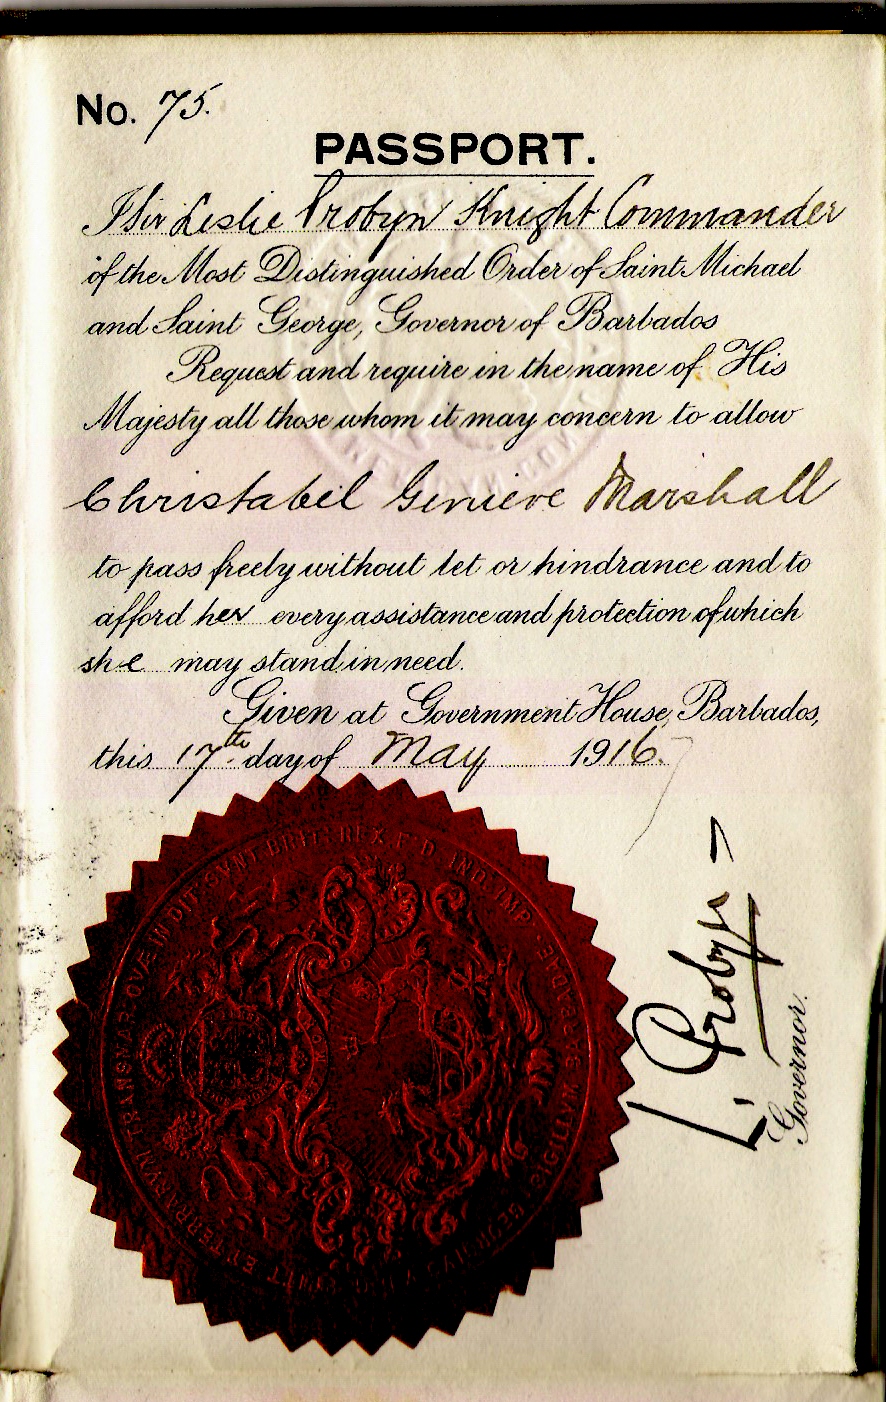 No. 75.
PASSPORT.
I Sir Leslie Probyn Knight Commander
of the Most Distinguished Order of Saint Michael
and Saint George, Governor of Barbados
Request and require in the name of His
Majesty all those whom it may concern to allow
Christabel Genieve Marshall
to pass freely without let or hindrance and to
afford her every assistance and protection of which
she may stand in need.
Given at Government House, Barbados,
this 17th day of May 1916.
L. Probyn
Governor.
TRANSMAR: QVÆ IN DIT: SVNT BRIT: REX F: D: IND: IMP: